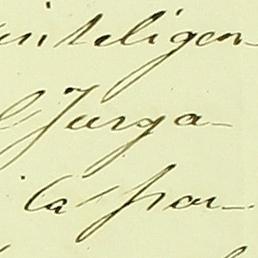 inteligen-
Juzga-
la par-